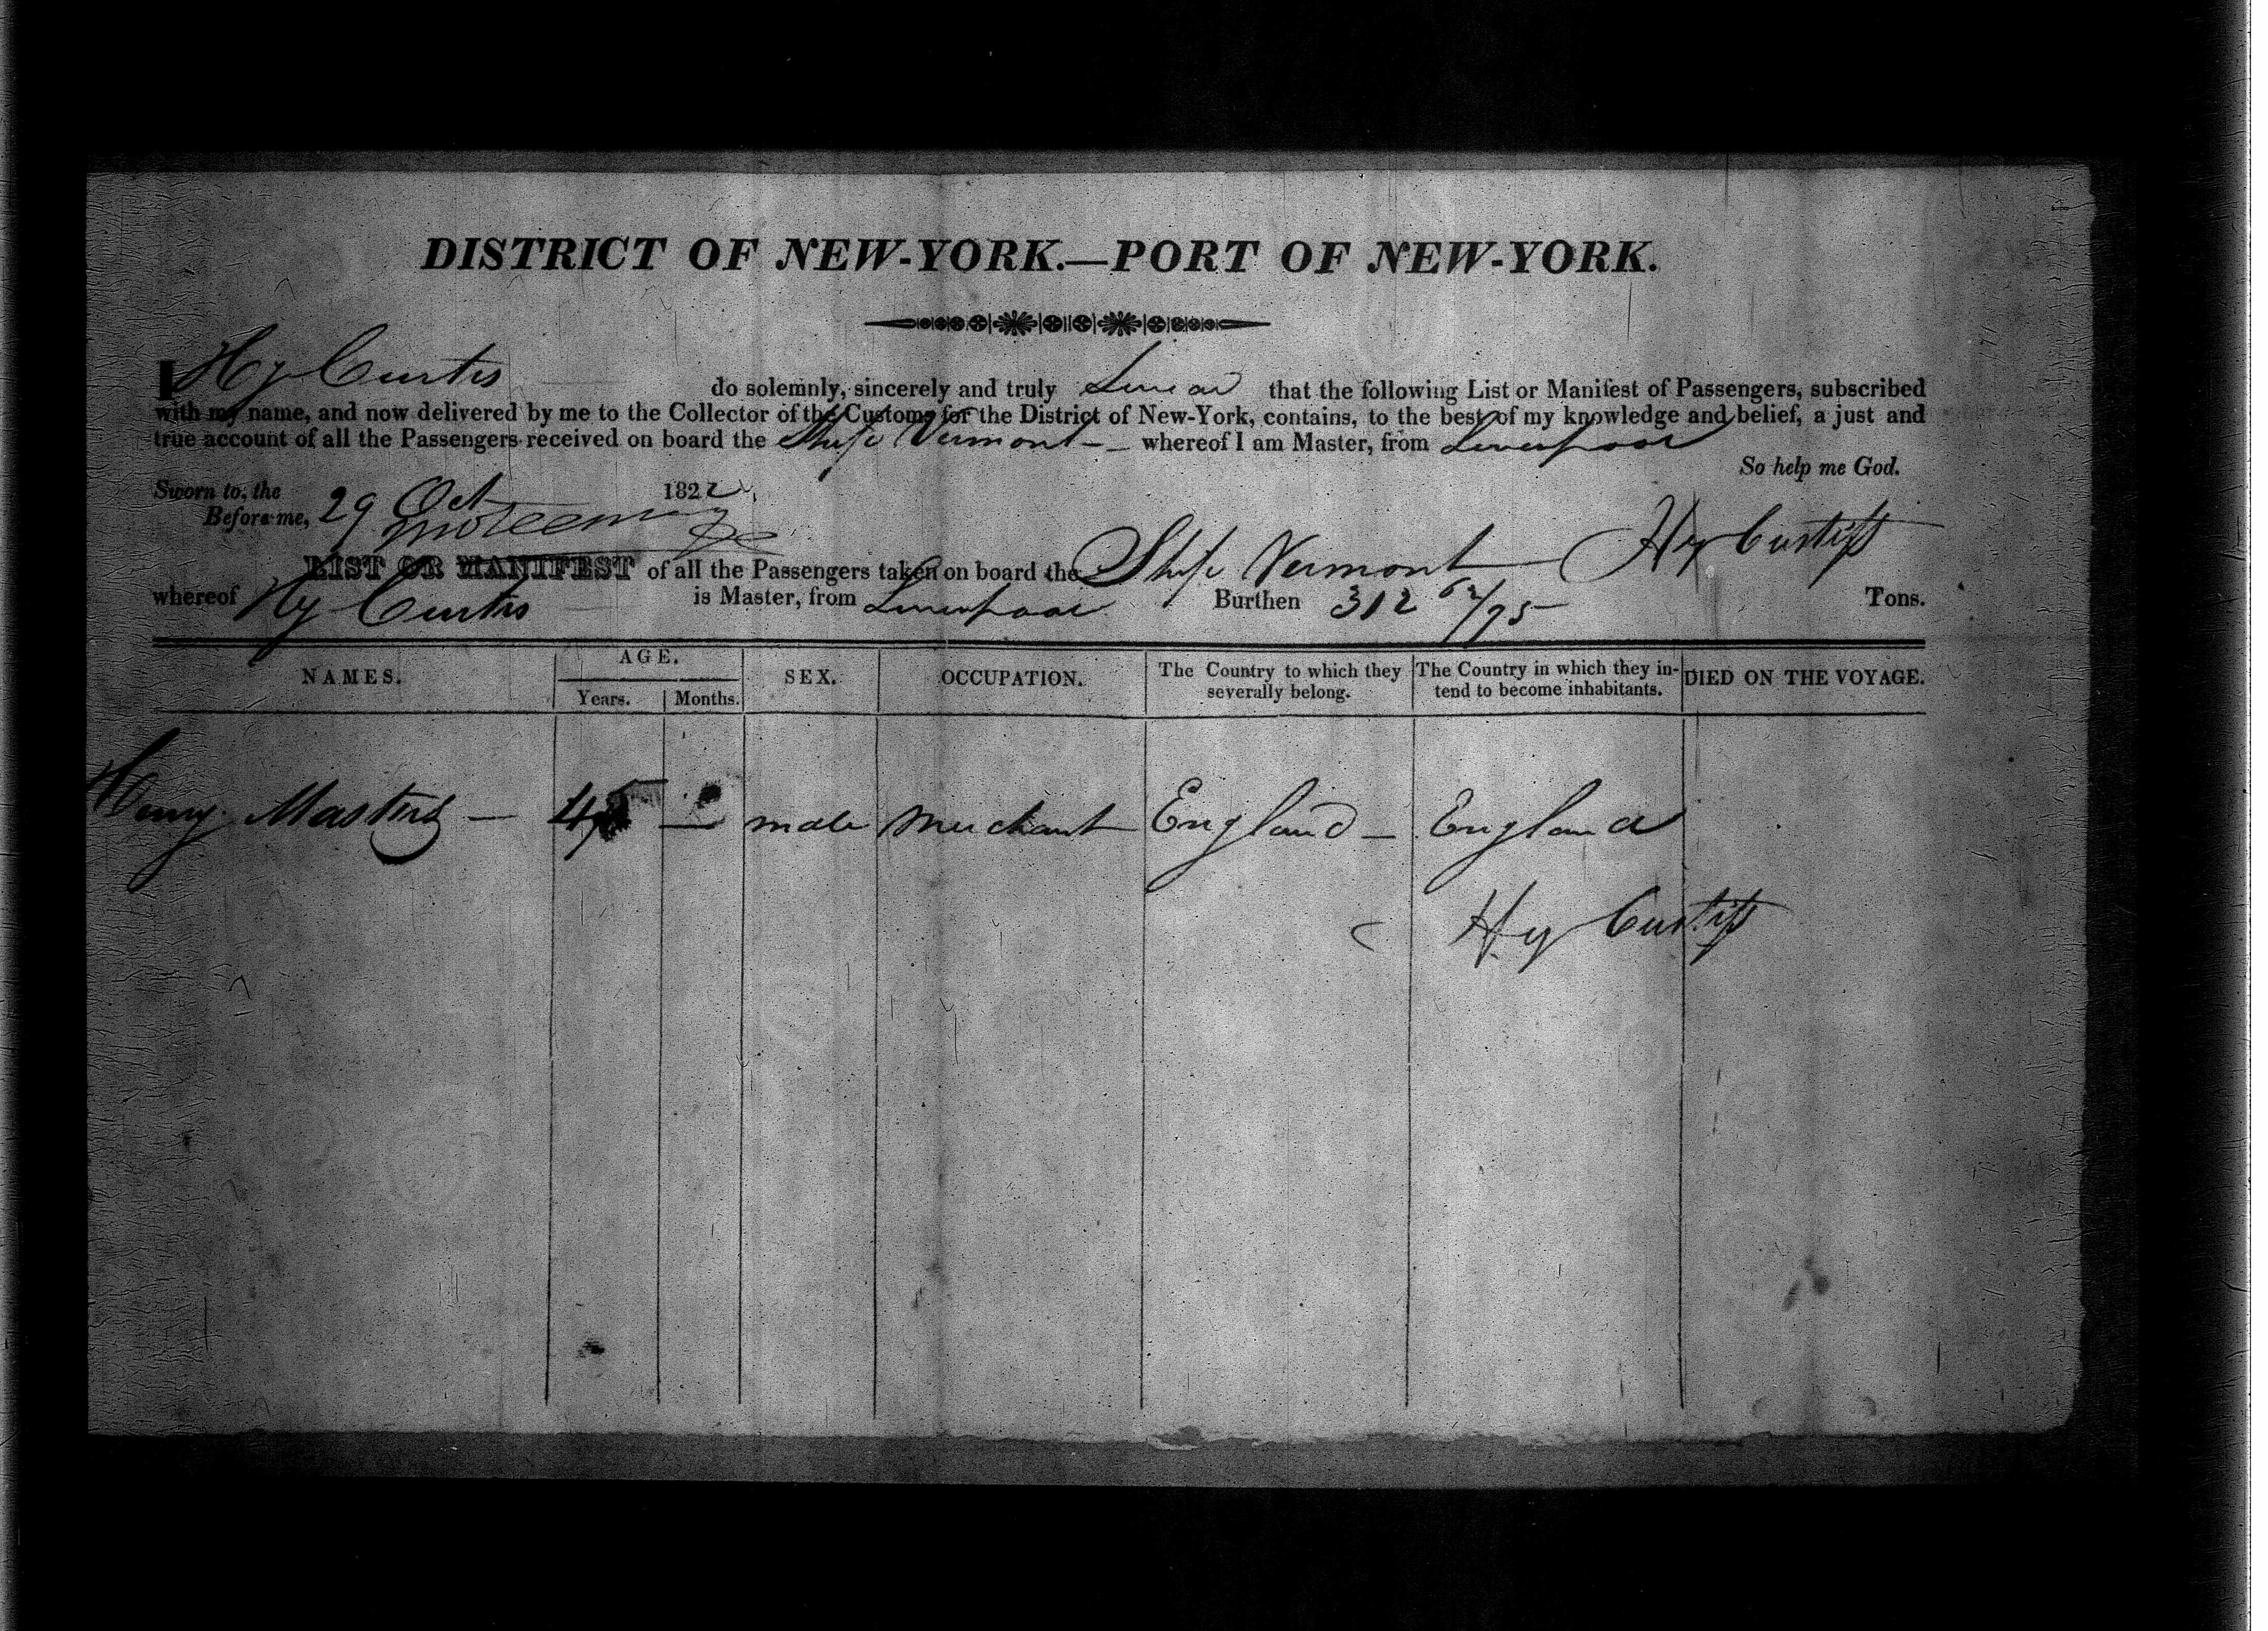 DISTRICT OF NEW-YORK.—PORT OF NEW-YORK.
I Hy Curtis do solemnly, sincerely and truly Swear that the following List or Manifest of Passengers, subscribed
with my name, and now delivered by me to the Collector of the Customs for the District of New-York, contains, to the best of my knowledge and belief, a just and
true account of all the Passengers received on board the Ship Vermont — whereof I am Master, from Liverpool
So help me God.
Sworn to, the 29 Oct 1822
Before me,
Hy Curtiss
LIST OR MANIFEST of all the Passengers taken on board the Ship Vermont
whereof Hy Curtis is Master, from Liverpool Burthen 312 62/95 Tons.
NAMES. AGE. SEX. OCCUPATION. The Country to which they severally belong. The Country in which they in-tend to become inhabitants. DIED ON THE VOYAGE.
Years. Months.
Henry Masters — 45 — male Merchant England — England
Hy Curtiss